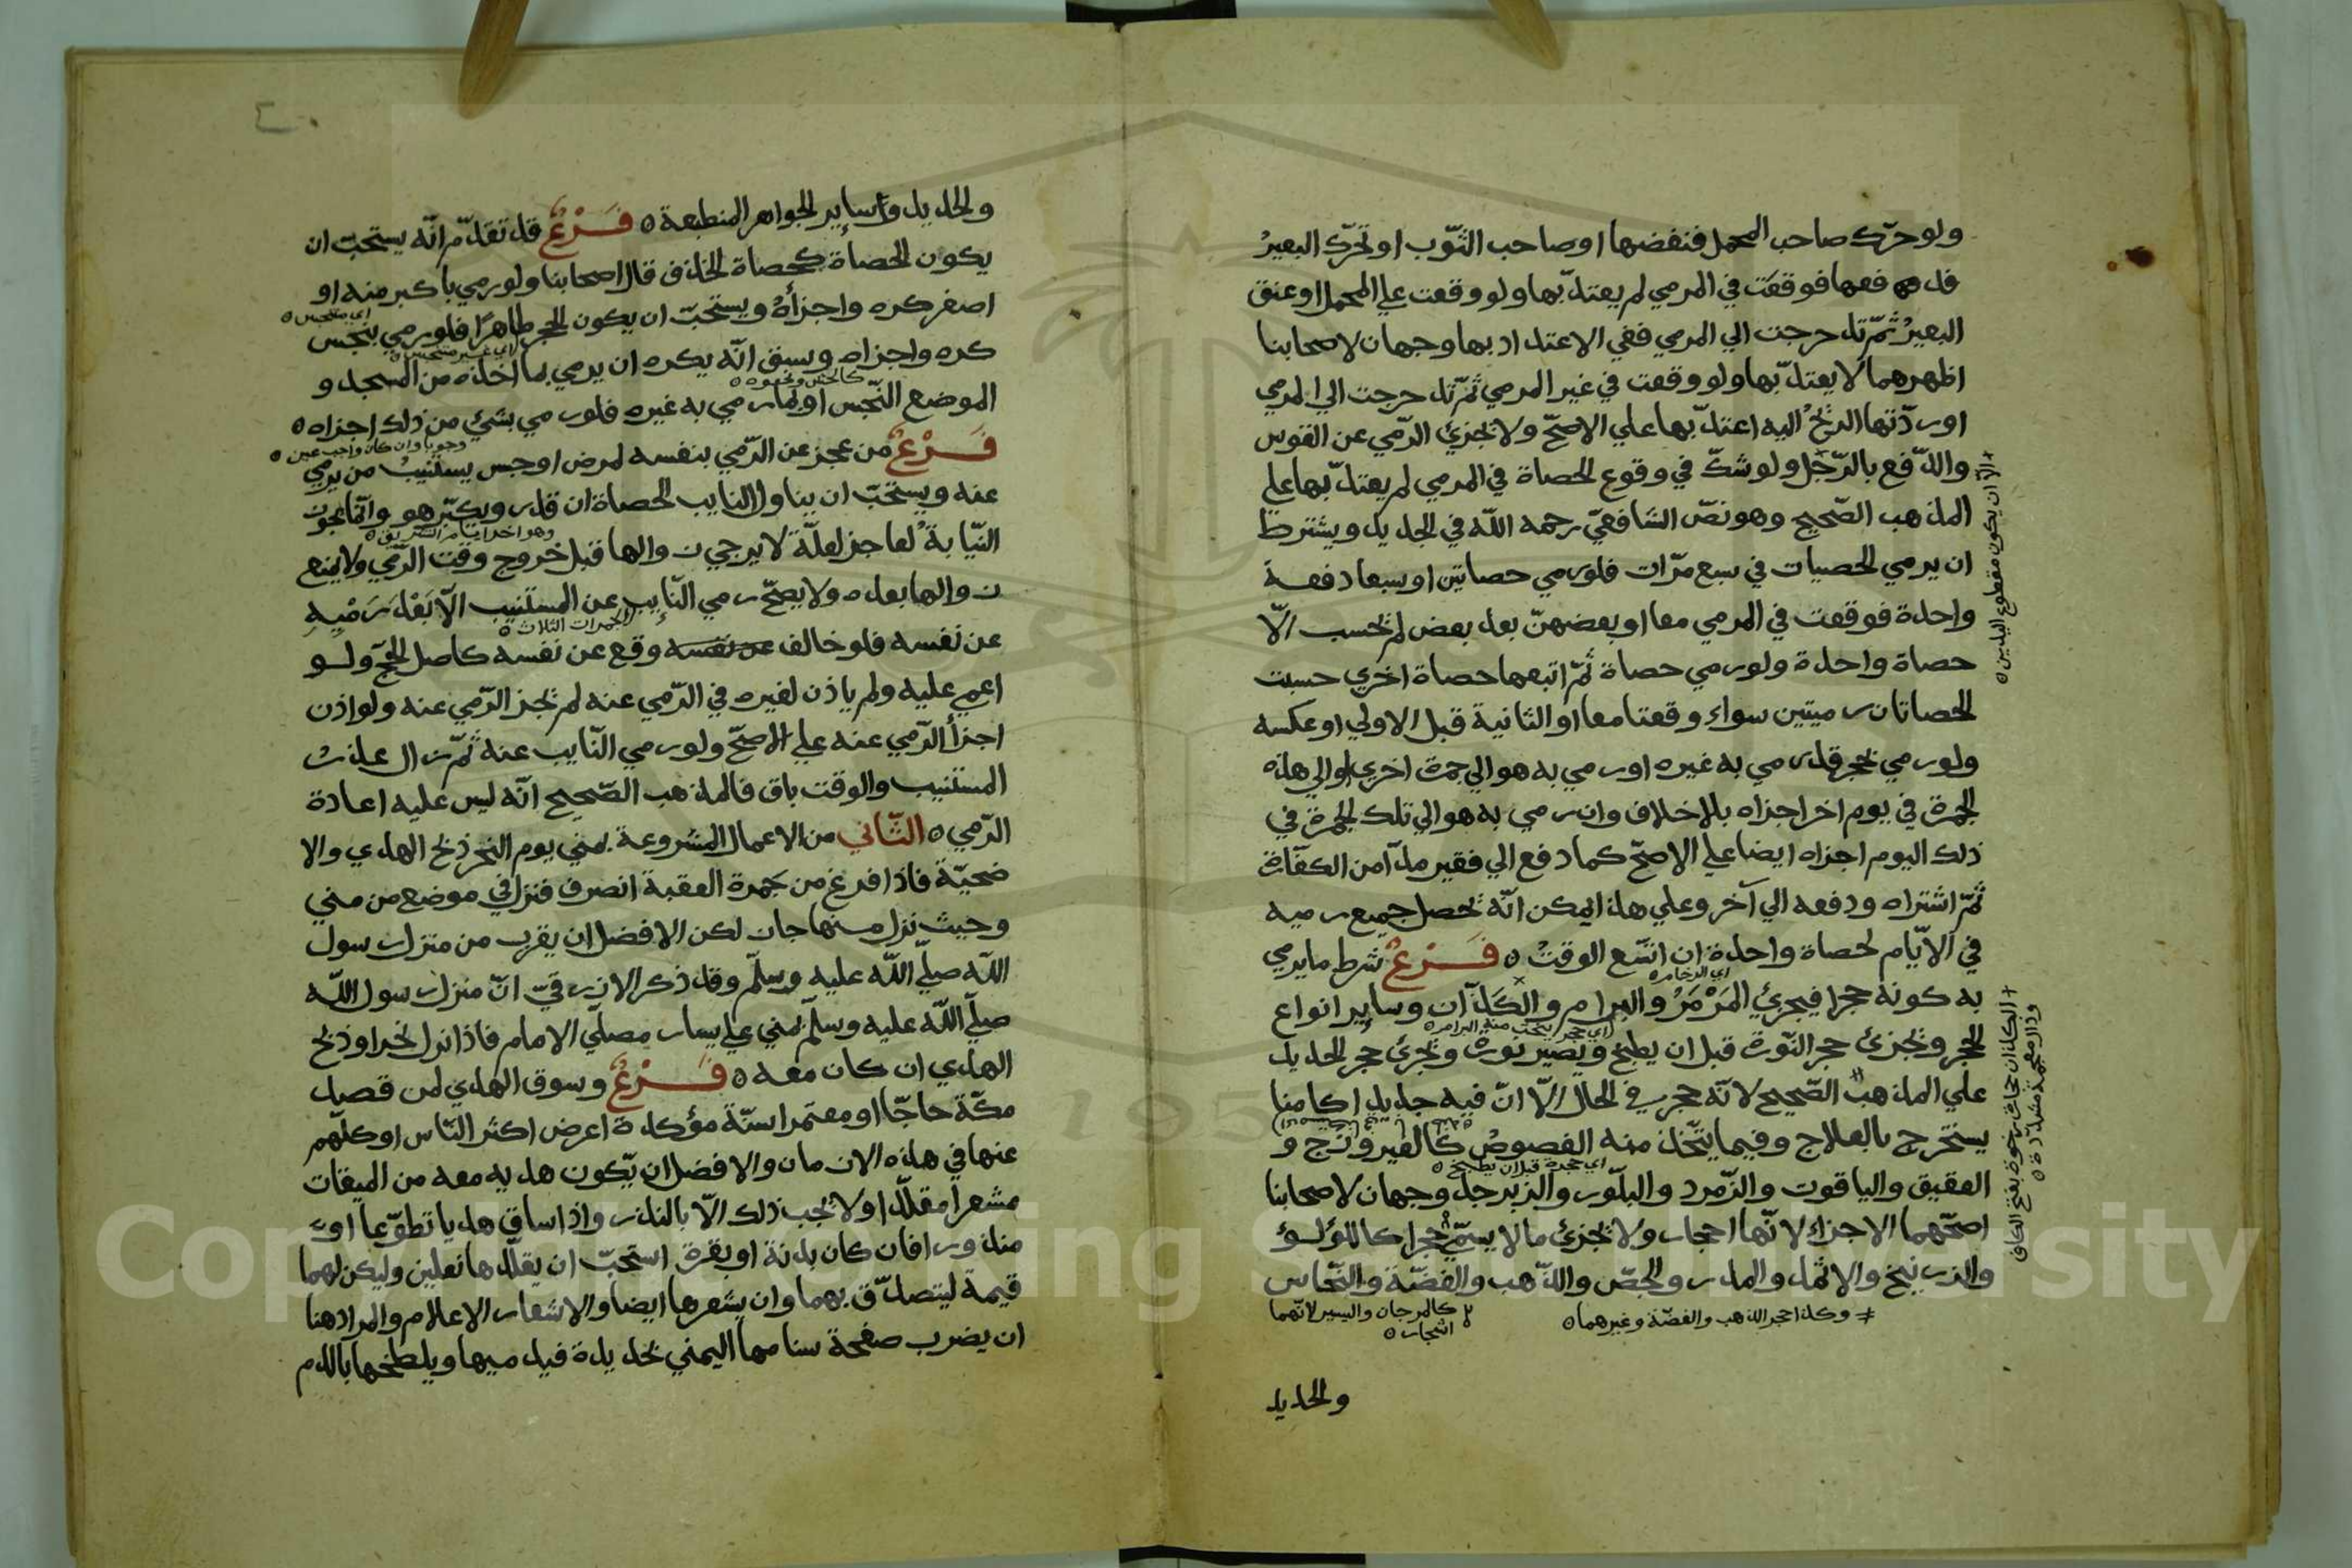 ولو حرّك صاحب المحمل فنفضها او صاحب الثّوب او تحرّك البعيرُ
فدفعها فوقعَت في المرمي لم يعتدّ بها ولو وقعت علي المحمل او عنق
البعيرُ ثمّ تدحرجت الي المرمي ففي الاعتداد بها وجهان لاصحابنا
اظهرهما لا يعتدّ بها ولو وقعت في غير المرمي ثمّ تدحرجت الي المرمي
او ردّتها الريحُ اليه اعتدّ بها علي الاصحّ ولا يجزئ الرّمي عن القوس
والدّفع بالرّجل ولو شكّ في وقوع الحصاة في المرمي لم يعتدّ بها علي
المذهب الصّحيح وهو نصّ الشافعيّ رحمه اللّه في الجديد ويشترط
ان يرمي الحصيات في سبع مرّات فلو رمي حصاتين او سبعا دفعة
واحدة فوقعت في المرمي معا او بعضهنّ بعد بعض لم تحسب الّا
حصاة واحدة ولو رمي حصاة ثمّ اتبعها حصاة اخري حسبت
الحصاتان رميتين سواء وقعتا معا او الثانية قبل الاولي او عكسه
ولو رمي بحجر قد رمي به غيره او رمي به هو الي جمرة اخري او الي هذه
الجمرة في يوم اخر اجزاه بلا خلاف وان رمي به هو الي تلك الجمرة في
ذلك اليوم اجزاه ايضا علي الاصحّ كما دفع الي فقير مدّا من الكفّارة
ثمّ اشتراه ودفعه الي آخر وعلي هذا يمكن انّه تحصل جميع رميه
في الايّام لحصاة واحدة ان اتّسع الوقتُ ٥ فَرْعٌ شرط ما يرمي
اي الرخام ٥
به كونه حجرا فيجزئ المَرْمَرُ والبرام والكَذّان وساير انواع
اي حجر يتخذ منه البرام ٥
الحجر ويجزئ حجر النّورة قبل ان يطبخ ويصير نورة ويجزئ حجر الحديد
علي المذهب الصّحيح لانّه حجر في الحال الّا انّ فيه حديدا كامنا
يستخرج بالعلاج وفيما يتّخذ منه الفصوصُ كالفيروزج و
اي حجرة قبل ان يطبخ ٥
العقيق والياقوت والزّمرد والبلّور والزبرجد وجهان لاصحابنا
اصحّهما الاجزاء لانّها احجار ولا يجزئ ما لا يسمّي حجرا كاللؤلؤ
والزرنيخ والاثمد والمدر والجصّ والذّهب والفضّة والنّحاس
وكذا حجر الذهب والفضّة وغيرهما ٥
كالمرجان واليسير لانّهما
اشجار ٥
والحديد
الّا ان يكون مقطوع اليدين ٥
الكذان حجارة رخوة بفتح الكاف
وذال معجمة مشدّدة ٥
والحديد وساير الجواهر المنطبعة ٥ فَرْعٌ قد تقدّم انّه يستحبّ ان
يكون الحصاة كحصاة الخذف قال اصحابنا ولو رمي باكبر منه او
اصغر كره واجزأهُ ويستحبّ ان يكون الحجر طاهرًا فلو رمي بنجس
اي متنجس ٥
كره واجزاه وسبق انّه يكره ان يرمي بما اخذه من المسجد و
اي غير متنجس ٥
الموضع النّجس او بما رمي به غيره فلو رمي بشئ من ذلك اجزاه ٥
كالحش ونحوه ٥
فَرْعٌ من عجز عن الرّمي بنفسه لمرض او حبس يستنيبُ من يرمي
وجوبا وان كان واجب عين ٥
عنه ويستحبّ ان يناول النايب الحصاة ان قدر ويكبّر هو وانّما تجوز
النّيابةُ لعاجز لعلّة لا يرجي زوالها قبل خروج وقت الرّمي ولا يمنع
وهو اخر ايام التشريق ٥
زوالها بعده ولا يصحّ رمي النّايب عن المستنيب الّا بَعْدَ رَمْيِهِ
عن نفسه فلو خالف عن نفسه وقع عن نفسه كاصل الحجّ ولو
الجمرات الثلاث ٥
اغمي عليه ولم ياذن لغيره في الرّمي عنه لم يجز الرّمي عنه ولو اذن
اجزأ الرّمي عنه علي الاصحّ ولو رمي النّايب عنه ثمّ زال عذر
المستنيب والوقت باق فالمذهب الصّحيح انّه ليس عليه اعادة
الرّمي ٥ الثّاني من الاعمال المشروعة بمني يوم النحر ذبح الهدي والا
ضحيّة فاذا فرغ من جمرة العقبة انصرف فنزل في موضع من مني
وحيث نزل منها جاز لكن الافضل ان يقرب من منزل رسول
اللّه صلّي اللّه عليه وسلّم وقد ذكر الازرقيّ انّ منزل رسول اللّه
صلّي اللّه عليه وسلّم بمني علي يسار مصلّي الامام فاذا نزل نحر او ذبح
الهدي ان كان معه ٥ فَرْعٌ وسوق الهدي لمن قصد
مكّة حاجّا او معتمرا سنّة مؤكدة اعرض اكثر النّاس او كلّهم
عنها في هذه الازمان والافضل ان يّكون هديه معه من الميقات
مشعرا مقلّدا ولا يجب ذلك الّا بالنذر واذا ساق هديا تطوّعا او
منذورا فان كان بدنة او بقرة استحبّ ان يقلّدها نعلين وليكن لهما
قيمة ليتصدّق بهما وان يشعرها ايضا والاشعار الاعلام والمراد هنا
ان يضرب صفحة سنامها اليمني بحديدة فيدميها ويلطخها بالدم